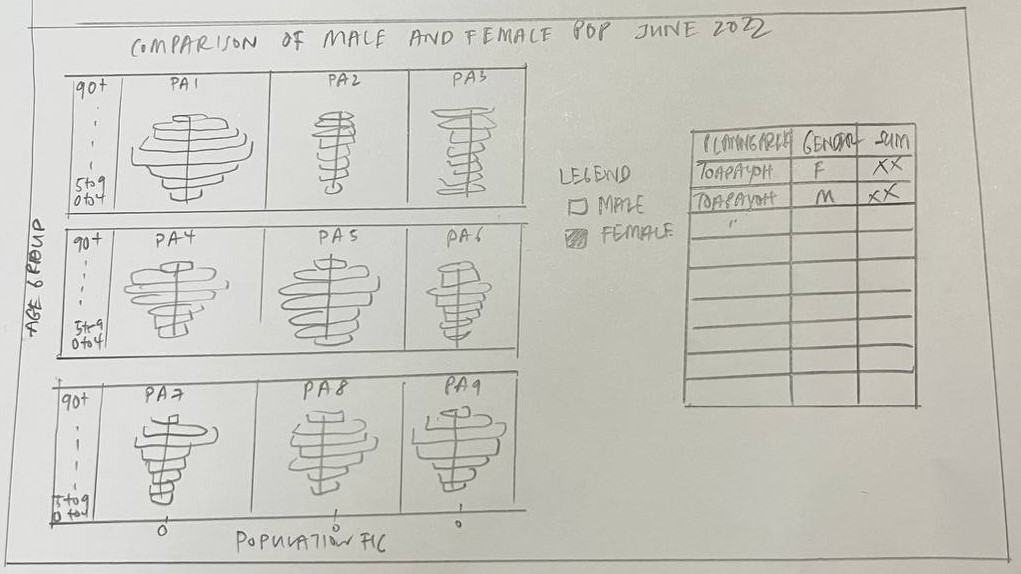 COMPARISON OF MALE AND FEMALE POP JUNE 2022
AGE GROUP
90+
5to9
0to4
PA1
PA2
PA3
90+
5to9
0to4
PA4
PA5
PA6
90+
5to9
0to4
PA7
PA8
PA9
0
0
0
POPULATION
LEGEND
MALE
FEMALE
GENDER SUM
TOAPAYOH F XX
TOAPAYOH M XX
"